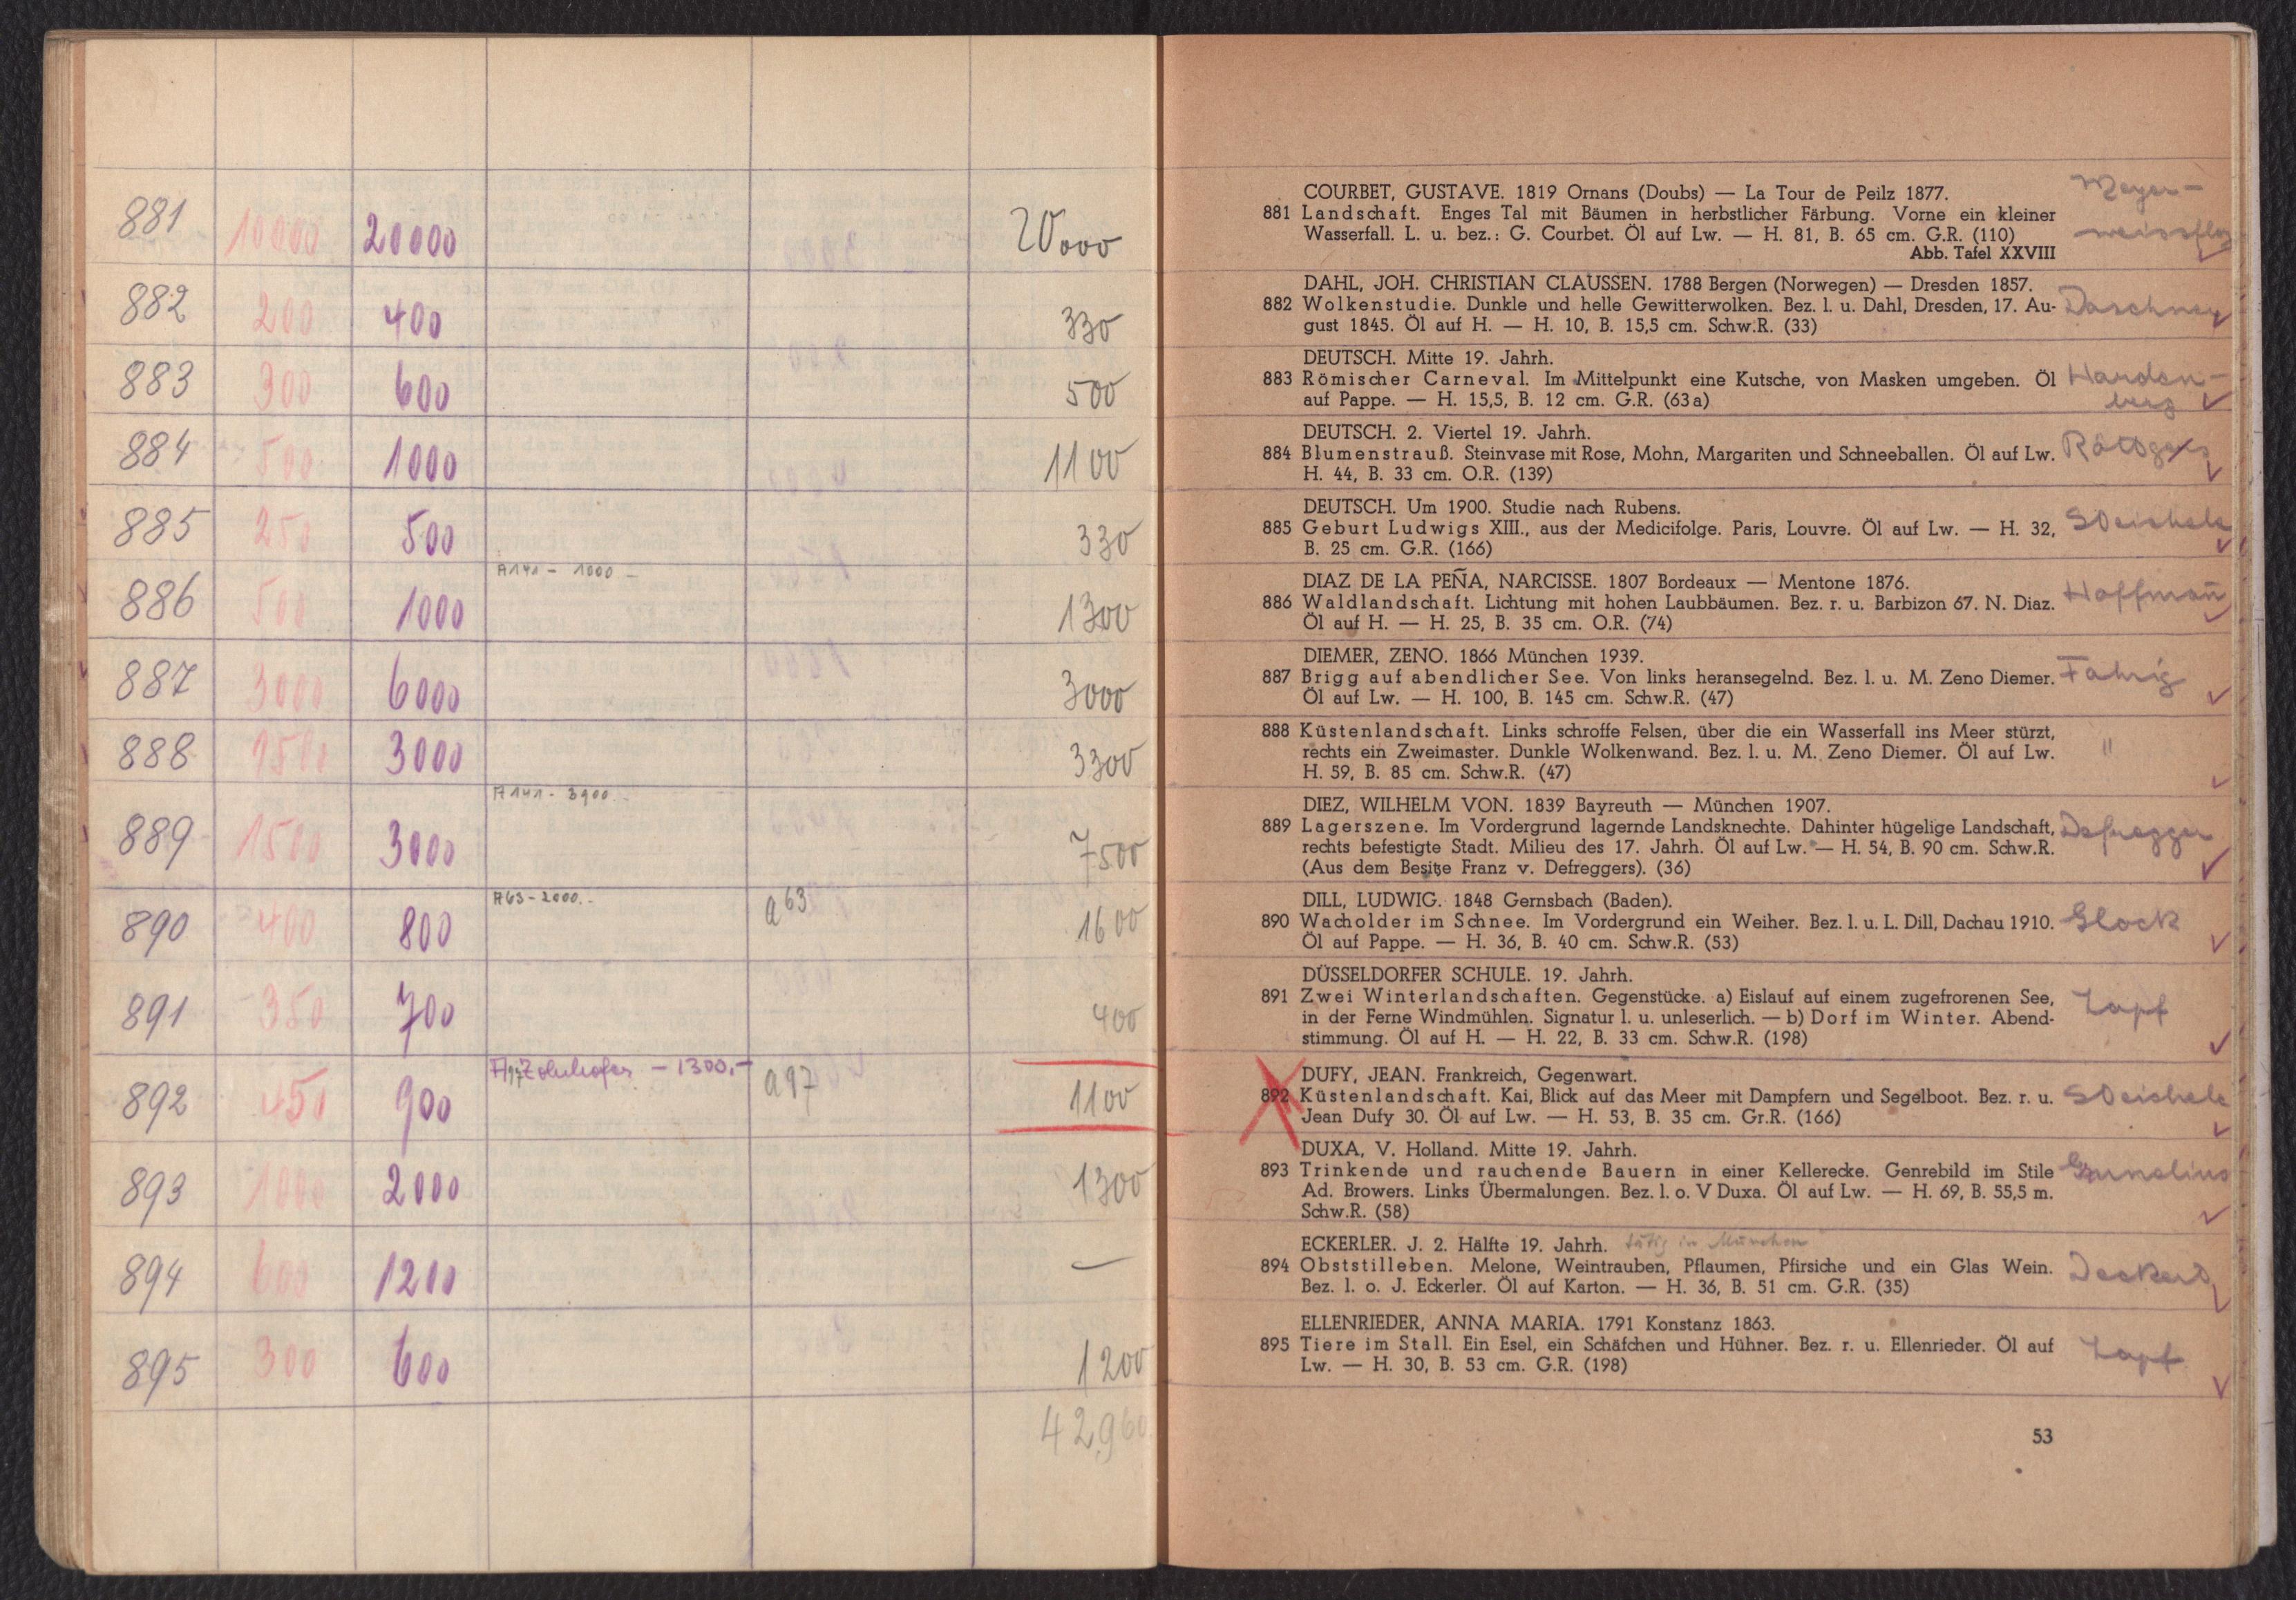 881 10000 20000 20000
882 200 400 330
883 300 600 500
884 500 1000 1100
885 250 500 330
A141 - 1000 -
886 500 1000 1300
887 3000 6000 3000
888 1500 3000 3300
A141 - 3900.-
889 1500 3000 7500
A63 - 2000.- a63
890 400 800 1600
891 350 700 400
- 1300,- a97
892 450 900 1100
893 1000 2000 1300
894 600 1200 —
895 300 600 1200
42960
COURBET, GUSTAVE. 1819 Ornans (Doubs) — La Tour de Peilz 1877. Meyer-
881 Landschaft. Enges Tal mit Bäumen in herbstlicher Färbung. Vorne ein kleiner
Wasserfall. L. u. bez.: G. Courbet. Öl auf Lw. — H. 81, B. 65 cm. G.R. (110) weissflog
Abb. Tafel XXVIII
DAHL, JOH. CHRISTIAN CLAUSSEN. 1788 Bergen (Norwegen) — Dresden 1857.
882 Wolkenstudie. Dunkle und helle Gewitterwolken. Bez. l. u. Dahl, Dresden, 17. Au-
gust 1845. Öl auf H. — H. 10, B. 15,5 cm. Schw.R. (33)
DEUTSCH. Mitte 19. Jahrh.
883 Römischer Carneval. Im Mittelpunkt eine Kutsche, von Masken umgeben. Öl Harden-
auf Pappe. — H. 15,5, B. 12 cm. G.R. (63a) berg
DEUTSCH. 2. Viertel 19. Jahrh.
884 Blumenstrauß. Steinvase mit Rose, Mohn, Margariten und Schneeballen. Öl auf Lw. Röttgers
H. 44, B. 33 cm. O.R. (139)
DEUTSCH. Um 1900. Studie nach Rubens.
885 Geburt Ludwigs XIII., aus der Medicifolge. Paris, Louvre. Öl auf Lw. — H. 32,
B. 25 cm. G.R. (166)
DIAZ DE LA PEÑA, NARCISSE. 1807 Bordeaux — Mentone 1876.
886 Waldlandschaft. Lichtung mit hohen Laubbäumen. Bez. r. u. Barbizon 67. N. Diaz. Hoffmañ
Öl auf H. — H. 25, B. 35 cm. O.R. (74)
DIEMER, ZENO. 1866 München 1939.
887 Brigg auf abendlicher See. Von links heransegelnd. Bez. l. u. M. Zeno Diemer. Fahrig
Öl auf Lw. — H. 100, B. 145 cm. Schw.R. (47)
888 Küstenlandschaft. Links schroffe Felsen, über die ein Wasserfall ins Meer stürzt,
rechts ein Zweimaster. Dunkle Wolkenwand. Bez. l. u. M. Zeno Diemer. Öl auf Lw. "
H. 59, B. 85 cm. Schw.R. (47)
DIEZ, WILHELM VON. 1839 Bayreuth — München 1907.
889 Lagerszene. Im Vordergrund lagernde Landsknechte. Dahinter hügelige Landschaft, Defregger
rechts befestigte Stadt. Milieu des 17. Jahrh. Öl auf Lw. — H. 54, B. 90 cm. Schw.R.
(Aus dem Besitze Franz v. Defreggers). (36)
DILL, LUDWIG. 1848 Gernsbach (Baden).
890 Wacholder im Schnee. Im Vordergrund ein Weiher. Bez. l. u. L. Dill, Dachau 1910. Glock
Öl auf Pappe. — H. 36, B. 40 cm. Schw.R. (53)
DÜSSELDORFER SCHULE. 19. Jahrh.
891 Zwei Winterlandschaften. Gegenstücke. a) Eislauf auf einem zugefrorenen See, Zapf
in der Ferne Windmühlen. Signatur l. u. unleserlich. — b) Dorf im Winter. Abend-
stimmung. Öl auf H. — H. 22, B. 33 cm. Schw.R. (198)
DUFY, JEAN. Frankreich, Gegenwart.
892 Küstenlandschaft. Kai, Blick auf das Meer mit Dampfern und Segelboot. Bez. r. u.
Jean Dufy 30. Öl auf Lw. — H. 53, B. 35 cm. Gr.R. (166)
DUXA, V. Holland. Mitte 19. Jahrh.
893 Trinkende und rauchende Bauern in einer Kellerecke. Genrebild im Stile
Ad. Browers. Links Übermalungen. Bez. l. o. V Duxa. Öl auf Lw. — H. 69, B. 55,5 m.
Schw.R. (58)
ECKERLER. J. 2. Hälfte 19. Jahrh. tätig in München
894 Obststilleben. Melone, Weintrauben, Pflaumen, Pfirsiche und ein Glas Wein. Deckert
Bez. l. o. J. Eckerler. Öl auf Karton. — H. 36, B. 51 cm. G.R. (35)
ELLENRIEDER, ANNA MARIA. 1791 Konstanz 1863.
895 Tiere im Stall. Ein Esel, ein Schäfchen und Hühner. Bez. r. u. Ellenrieder. Öl auf Zapf
Lw. — H. 30, B. 53 cm. G.R. (198)
53